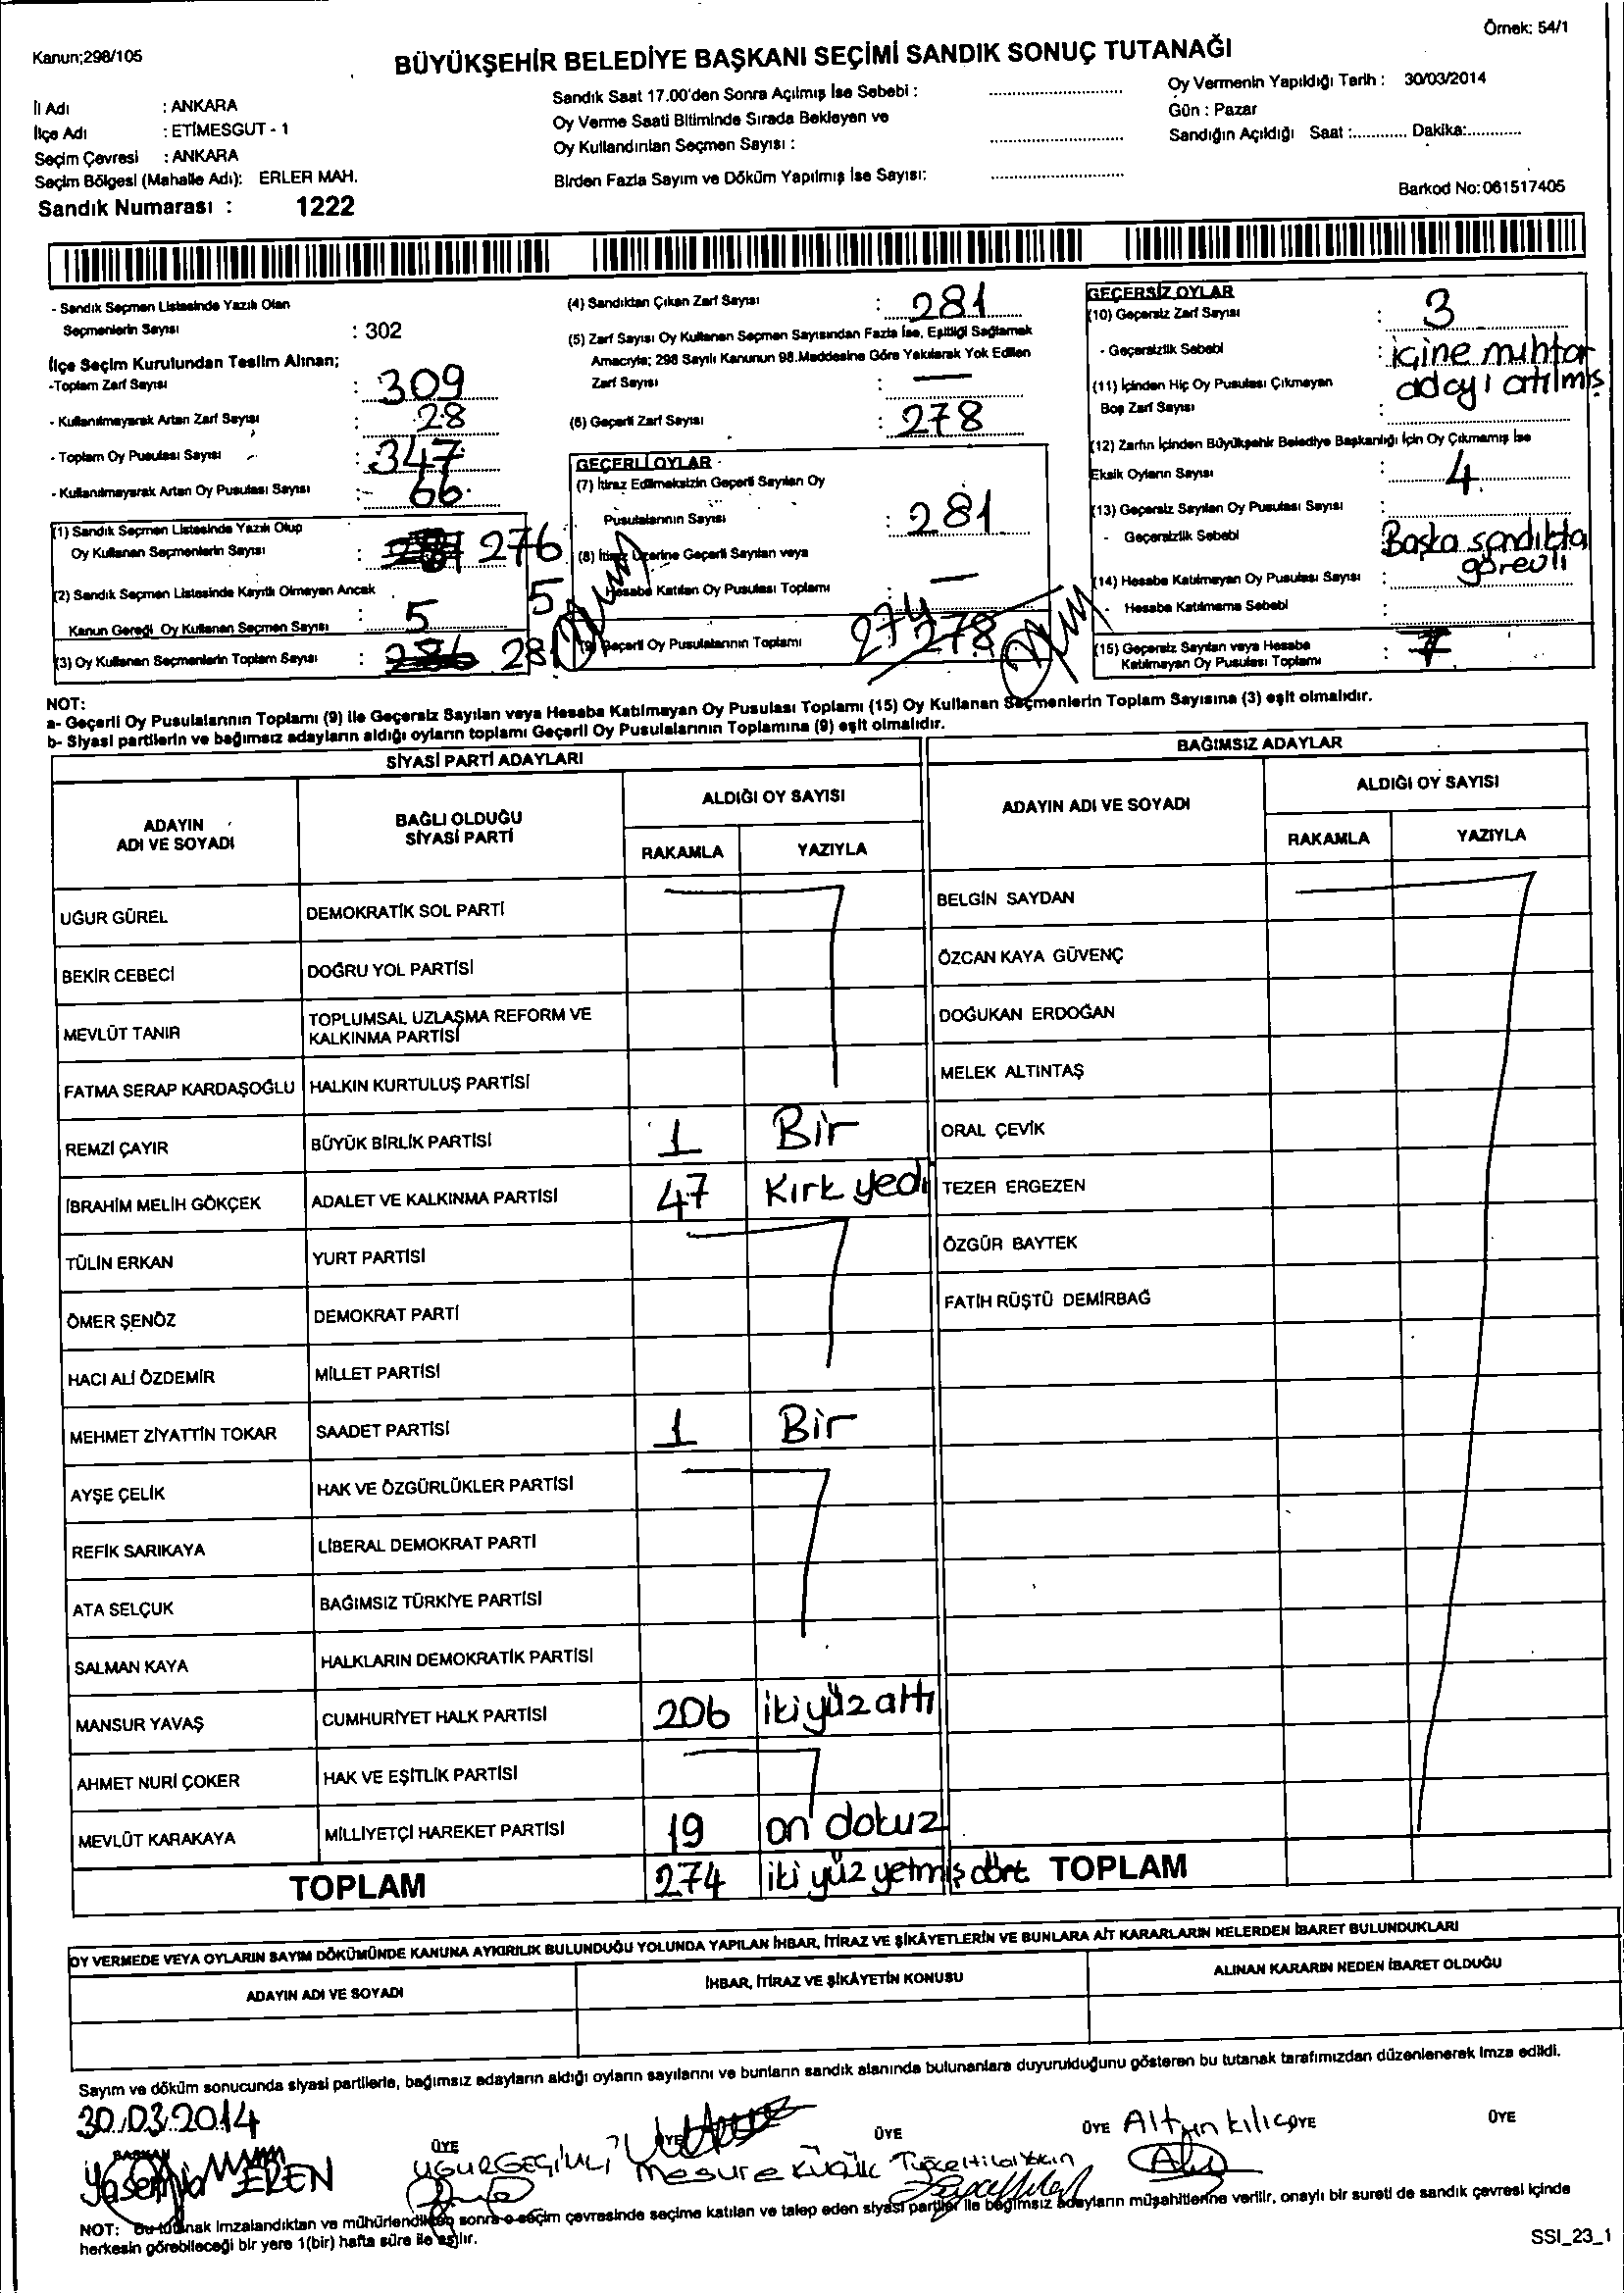 Örnek: 54/1
Kanun;298/105
BÜYÜKŞEHİR BELEDİYE BAŞKANI SEÇİMİ SANDIK SONUÇ TUTANAĞI
İl Adı : ANKARA
İlçe Adı : ETİMESGUT - 1
Seçim Çevresi : ANKARA
Seçim Bölgesi (Mahalle Adı): ERLER MAH.
Sandık Numarası : 1222
Sandık Saat 17.00'den Sonra Açılmış İse Sebebi : ........................
Oy Verme Saati Bitiminde Sırada Bekleyen ve
Oy Kullandırılan Seçmen Sayısı : ........................
Birden Fazla Sayım ve Döküm Yapılmış İse Sayısı: ........................
Oy Vermenin Yapıldığı Tarih : 30/03/2014
Gün : Pazar
Sandığın Açıldığı Saat :............ Dakika:............
Barkod No: 061517405
- Sandık Seçmen Listesinde Yazılı Olan
Seçmenlerin Sayısı : 302
İlçe Seçim Kurulundan Teslim Alınan;
-Toplam Zarf Sayısı : 309
- Kullanılmayarak Artan Zarf Sayısı : 28
- Toplam Oy Pusulası Sayısı : 347
- Kullanılmayarak Artan Oy Pusulası Sayısı : 66
(1) Sandık Seçmen Listesinde Yazılı Olup
Oy Kullanan Seçmenlerin Sayısı : 276
(2) Sandık Seçmen Listesinde Kayıtlı Olmayan Ancak
Kanun Gereği Oy Kullanan Seçmen Sayısı : 5 5
(3) Oy Kullanan Seçmenlerin Toplam Sayısı : 286 281
(4) Sandıktan Çıkan Zarf Sayısı : 281
(5) Zarf Sayısı Oy Kullanan Seçmen Sayısından Fazla İse, Eşitliği Sağlamak
Amacıyla; 298 Sayılı Kanunun 98.Maddesine Göre Yakılarak Yok Edilen
Zarf Sayısı : —
(6) Geçerli Zarf Sayısı : 278
GEÇERLİ OYLAR
(7) İtiraz Edilmeksizin Geçerli Sayılan Oy
Pusulalarının Sayısı : 281
(8) İtiraz Üzerine Geçerli Sayılan veya
Hesaba Katılan Oy Pusulası Toplamı : —
(9) Geçerli Oy Pusulalarının Toplamı 274 278
GEÇERSİZ OYLAR
(10) Geçersiz Zarf Sayısı : 3
- Geçersizlik Sebebi : içine muhtar
adayı atılmış
(11) İçinden Hiç Oy Pusulası Çıkmayan
Boş Zarf Sayısı :
(12) Zarfın İçinden Büyükşehir Belediye Başkanlığı İçin Oy Çıkmamış İse
Eksik Oyların Sayısı : 4
(13) Geçersiz Sayılan Oy Pusulası Sayısı :
- Geçersizlik Sebebi Başka sandıkta
görevli
(14) Hesaba Katılmayan Oy Pusulası Sayısı :
- Hesaba Katılmama Sebebi :
(15) Geçersiz Sayılan veya Hesaba
Katılmayan Oy Pusulası Toplamı : 7
NOT:
a- Geçerli Oy Pusulalarının Toplamı (9) ile Geçersiz Sayılan veya Hesaba Katılmayan Oy Pusulası Toplamı (15) Oy Kullanan Seçmenlerin Toplam Sayısına (3) eşit olmalıdır.
b- Siyasi partilerin ve bağımsız adayların aldığı oyların toplamı Geçerli Oy Pusulalarının Toplamına (9) eşit olmalıdır.
SİYASİ PARTİ ADAYLARI
ADAYIN
ADI VE SOYADI
BAĞLI OLDUĞU
SİYASİ PARTİ
ALDIĞI OY SAYISI
RAKAMLA YAZIYLA
UĞUR GÜREL DEMOKRATİK SOL PARTİ
BEKİR CEBECİ DOĞRU YOL PARTİSİ
MEVLÜT TANIR TOPLUMSAL UZLAŞMA REFORM VE
KALKINMA PARTİSİ
FATMA SERAP KARDAŞOĞLU HALKIN KURTULUŞ PARTİSİ
REMZİ ÇAYIR BÜYÜK BİRLİK PARTİSİ 1 Bir
İBRAHİM MELİH GÖKÇEK ADALET VE KALKINMA PARTİSİ 47 Kırk yedi
TÜLİN ERKAN YURT PARTİSİ
ÖMER ŞENÖZ DEMOKRAT PARTİ
HACI ALİ ÖZDEMİR MİLLET PARTİSİ
MEHMET ZİYATTİN TOKAR SAADET PARTİSİ 1 Bir
AYŞE ÇELİK HAK VE ÖZGÜRLÜKLER PARTİSİ
REFİK SARIKAYA LİBERAL DEMOKRAT PARTİ
ATA SELÇUK BAĞIMSIZ TÜRKİYE PARTİSİ
SALMAN KAYA HALKLARIN DEMOKRATİK PARTİSİ
MANSUR YAVAŞ CUMHURİYET HALK PARTİSİ 206 iki yüz altı
AHMET NURİ ÇOKER HAK VE EŞİTLİK PARTİSİ
MEVLÜT KARAKAYA MİLLİYETÇİ HAREKET PARTİSİ 19 on dokuz
TOPLAM 274 iki yüz yetmiş dört
BAĞIMSIZ ADAYLAR
ADAYIN ADI VE SOYADI
ALDIĞI OY SAYISI
RAKAMLA YAZIYLA
BELGİN SAYDAN
ÖZCAN KAYA GÜVENÇ
DOĞUKAN ERDOĞAN
MELEK ALTINTAŞ
ORAL ÇEVİK
TEZER ERGEZEN
ÖZGÜR BAYTEK
FATİH RÜŞTÜ DEMİRBAĞ
TOPLAM
OY VERMEDE VEYA OYLARIN SAYIM DÖKÜMÜNDE KANUNA AYKIRILIK BULUNDUĞU YOLUNDA YAPILAN İHBAR, İTİRAZ VE ŞİKÂYETLERİN VE BUNLARA AİT KARARLARIN NELERDEN İBARET BULUNDUKLARI
ADAYIN ADI VE SOYADI İHBAR, İTİRAZ VE ŞİKÂYETİN KONUSU ALINAN KARARIN NEDEN İBARET OLDUĞU
Sayım ve döküm sonucunda siyasi partilerle, bağımsız adayların aldığı oyların sayılarını ve bunların sandık alanında bulunanlara duyurulduğunu gösteren bu tutanak tarafımızdan düzenlenerek imza edildi.
30.03.2014
BAŞKAN ÜYE ÜYE ÜYE ÜYE ÜYE ÜYE
Yasemin EREN
UĞUR GEÇİMLİ
Mesure Küçük
Altun Kılıç
NOT: Bu tutanak imzalandıktan ve mühürlendikten sonra o seçim çevresinde seçime katılan ve talep eden siyasi partiler ile bağımsız adayların müşahitlerine verilir, onaylı bir sureti de sandık çevresi içinde
herkesin görebileceği bir yere 1(bir) hafta süre ile asılır.
SSI_23_1